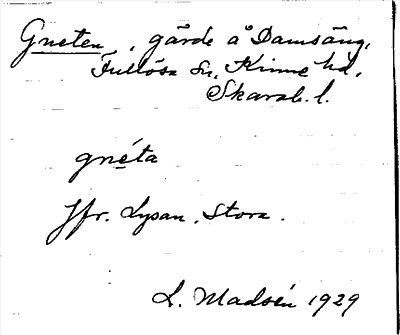 Gneten, gärde å Damsäng,
Fullösa Sn, Kinne hd,
Skarab. l.
gnéta
Jfr. Lysan, Stora.
L. Madsén 1929